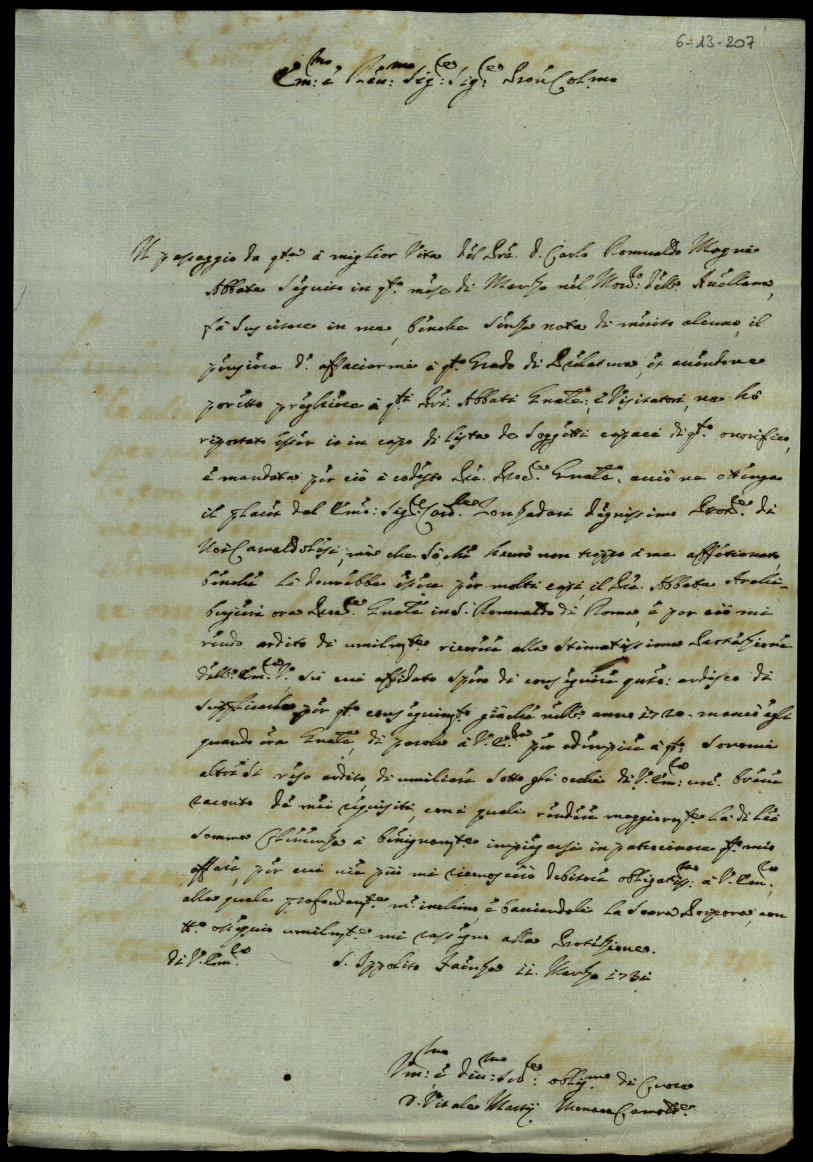 6-13-207
Em:mo è Reu:mo Sig:re Sig:re Pron Col:mo
Il passaggio da qta à miglior Vita del Pre. D. Carlo Romualdo Magni
Abbate seguito in qto. mese di Marzo nel Mon:ro dell'Auellana,
fà suscitare in me, benche senza nota di merito alcuno, il
pensiero d' affacciarmi à qto. Grado di Prelatura, et auendone
poretto preghiere à qti. Pri. Abbati Gnale:, è Visitatori, ne hò
riportato esser io in capo di lista de Soggetti capaci di qto. onorifico,
è mandata per ciò à codesto Pre. Proc:re Gnale. acciò ne ottenga
il placet dal Emo: Sig:re Card:le Zondadari degnissimo Prot:re di
Noi Camaldolesi; mà che sò, che hauró non troppo à me affettionato,
benche lo dourebbe essere per molti capi, il Pre. Abbate
ora Proc:re Gnale in S. Romualdo di Roma, è per ciò mi
rendo ardito di umilmte. ricorrere alla stimatissima Protezzione
dell'Em:za V:a. sù cui affidato spero di conseguire qnto: ardisco di
supplicarla per qto. conseguimto. giache nell' anno 1720. mancò egli
quando era Gnale, di parola à V. E:za per adempire à qto. Souemi
altresi reso ardito, di umiliare sotto gli occhi di V. Em:za un' breue
racconto de miei requisiti, con i quali rendere maggiormte. la di lei
somma Clemenza à benignamte impiegarsi in patrocinare qto. mio
affare, per cui uie più mi riconoscerò debitore obligatiss:mo à V. Em:za,
alla quale profondamte. m' inchino, è baciandole la Sacra Porpora, con
tto. ossequio umilmte. mi rassegno alla Protezzione.
di V. Em:za S. Ippolito Faenza 11. Marzo 1731
Vm:mo è Diu:mo Ser:re oblig:mo di Cuore
D. Vitale Monaco Camald:e.